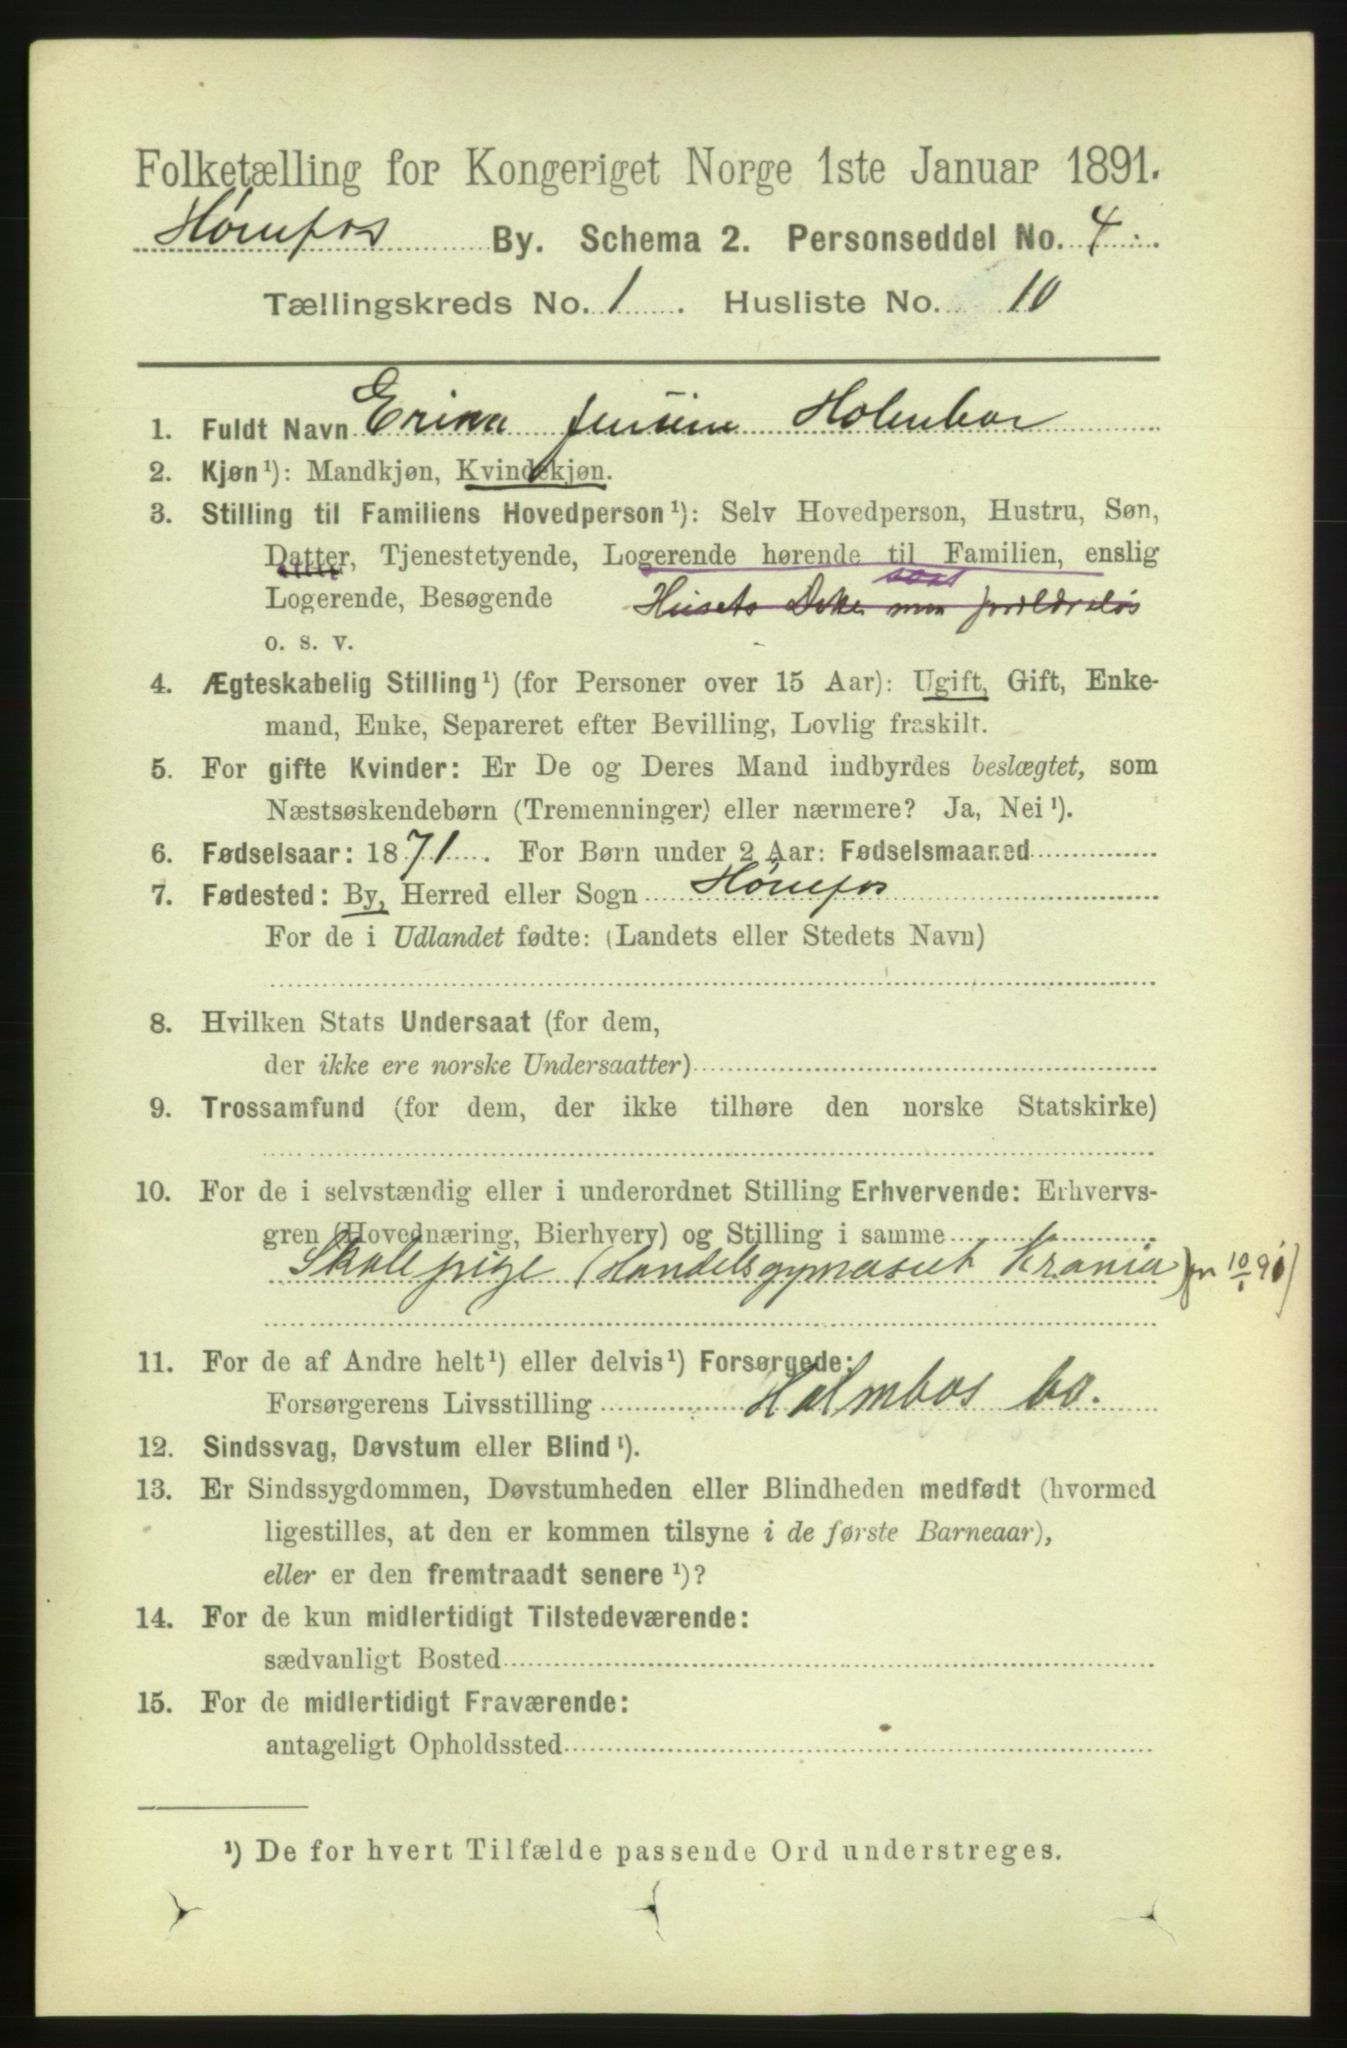 Folketælling for Kongeriget Norge 1ste Januar 1891.
Hønefos By. Schema 2. Personseddel No. 4.
Tællingskreds No. 1. Husliste No. 10
1. Fuldt Navn Erika Jensine Holmboe
2. Kjøn¹): Mandkjøn, Kvindekjøn.
3. Stilling til Familiens Hovedperson¹): Selv Hovedperson, Hustru, Søn,
Datter, Tjenestetyende, Logerende hørende til Familien, enslig
Logerende, Besøgende Husets men forældreløs
o. s. v.
4. Ægteskabelig Stilling¹) (for Personer over 15 Aar): Ugift, Gift, Enke-
mand, Enke, Separeret efter Bevilling, Lovlig fraskilt.
5. For gifte Kvinder: Er De og Deres Mand indbyrdes beslægtet, som
Næstsøskendebørn (Tremenninger) eller nærmere? Ja, Nei¹).
6. Fødselsaar: 1871. For Børn under 2 Aar: Fødselsmaaned
7. Fødested: By, Herred eller Sogn Hønefos
For de i Udlandet fødte: (Landets eller Stedets Navn)
8. Hvilken Stats Undersaat (for dem,
der ikke ere norske Undersaatter)
9. Trossamfund (for dem, der ikke tilhøre den norske Statskirke)
10. For de i selvstændig eller i underordnet Stilling Erhvervende: Erhvervs-
gren (Hovednæring, Bierhverv) og Stilling i samme
Skolepige (Handelsgymasiet Krania) fr 10/1 91)
11. For de af Andre helt¹) eller delvis¹) Forsørgede:
Forsørgerens Livsstilling Holmbos bo.
12. Sindssvag, Døvstum eller Blind¹).
13. Er Sindssygdommen, Døvstumheden eller Blindheden medfødt (hvormed
ligestilles, at den er kommen tilsyne i de første Barneaar),
eller er den fremtraadt senere¹)?
14. For de kun midlertidigt Tilstedeværende:
sædvanligt Bosted
15. For de midlertidigt Fraværende:
antageligt Opholdssted
¹) De for hvert Tilfælde passende Ord understreges.